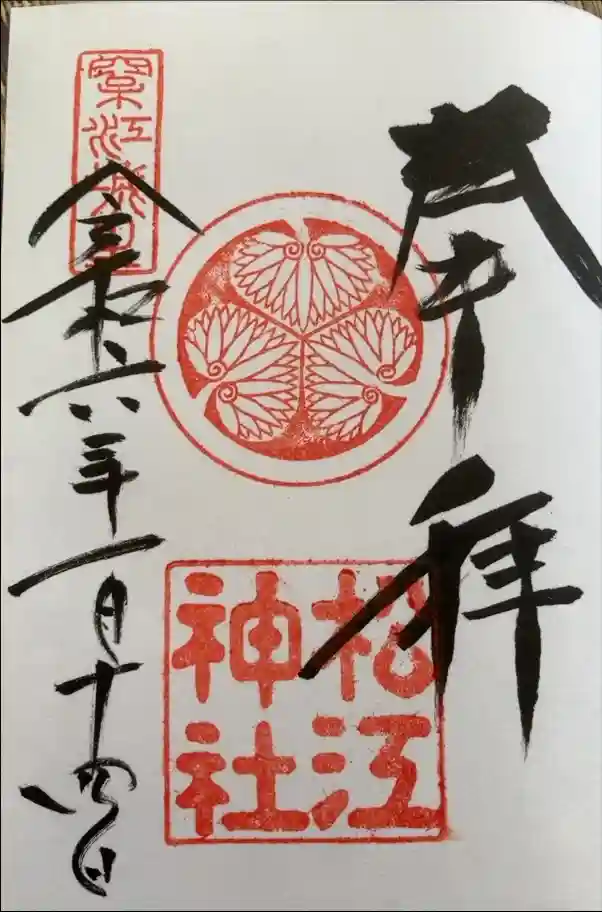 奉拝
松江
神社
松江城
令和六年一月十四日